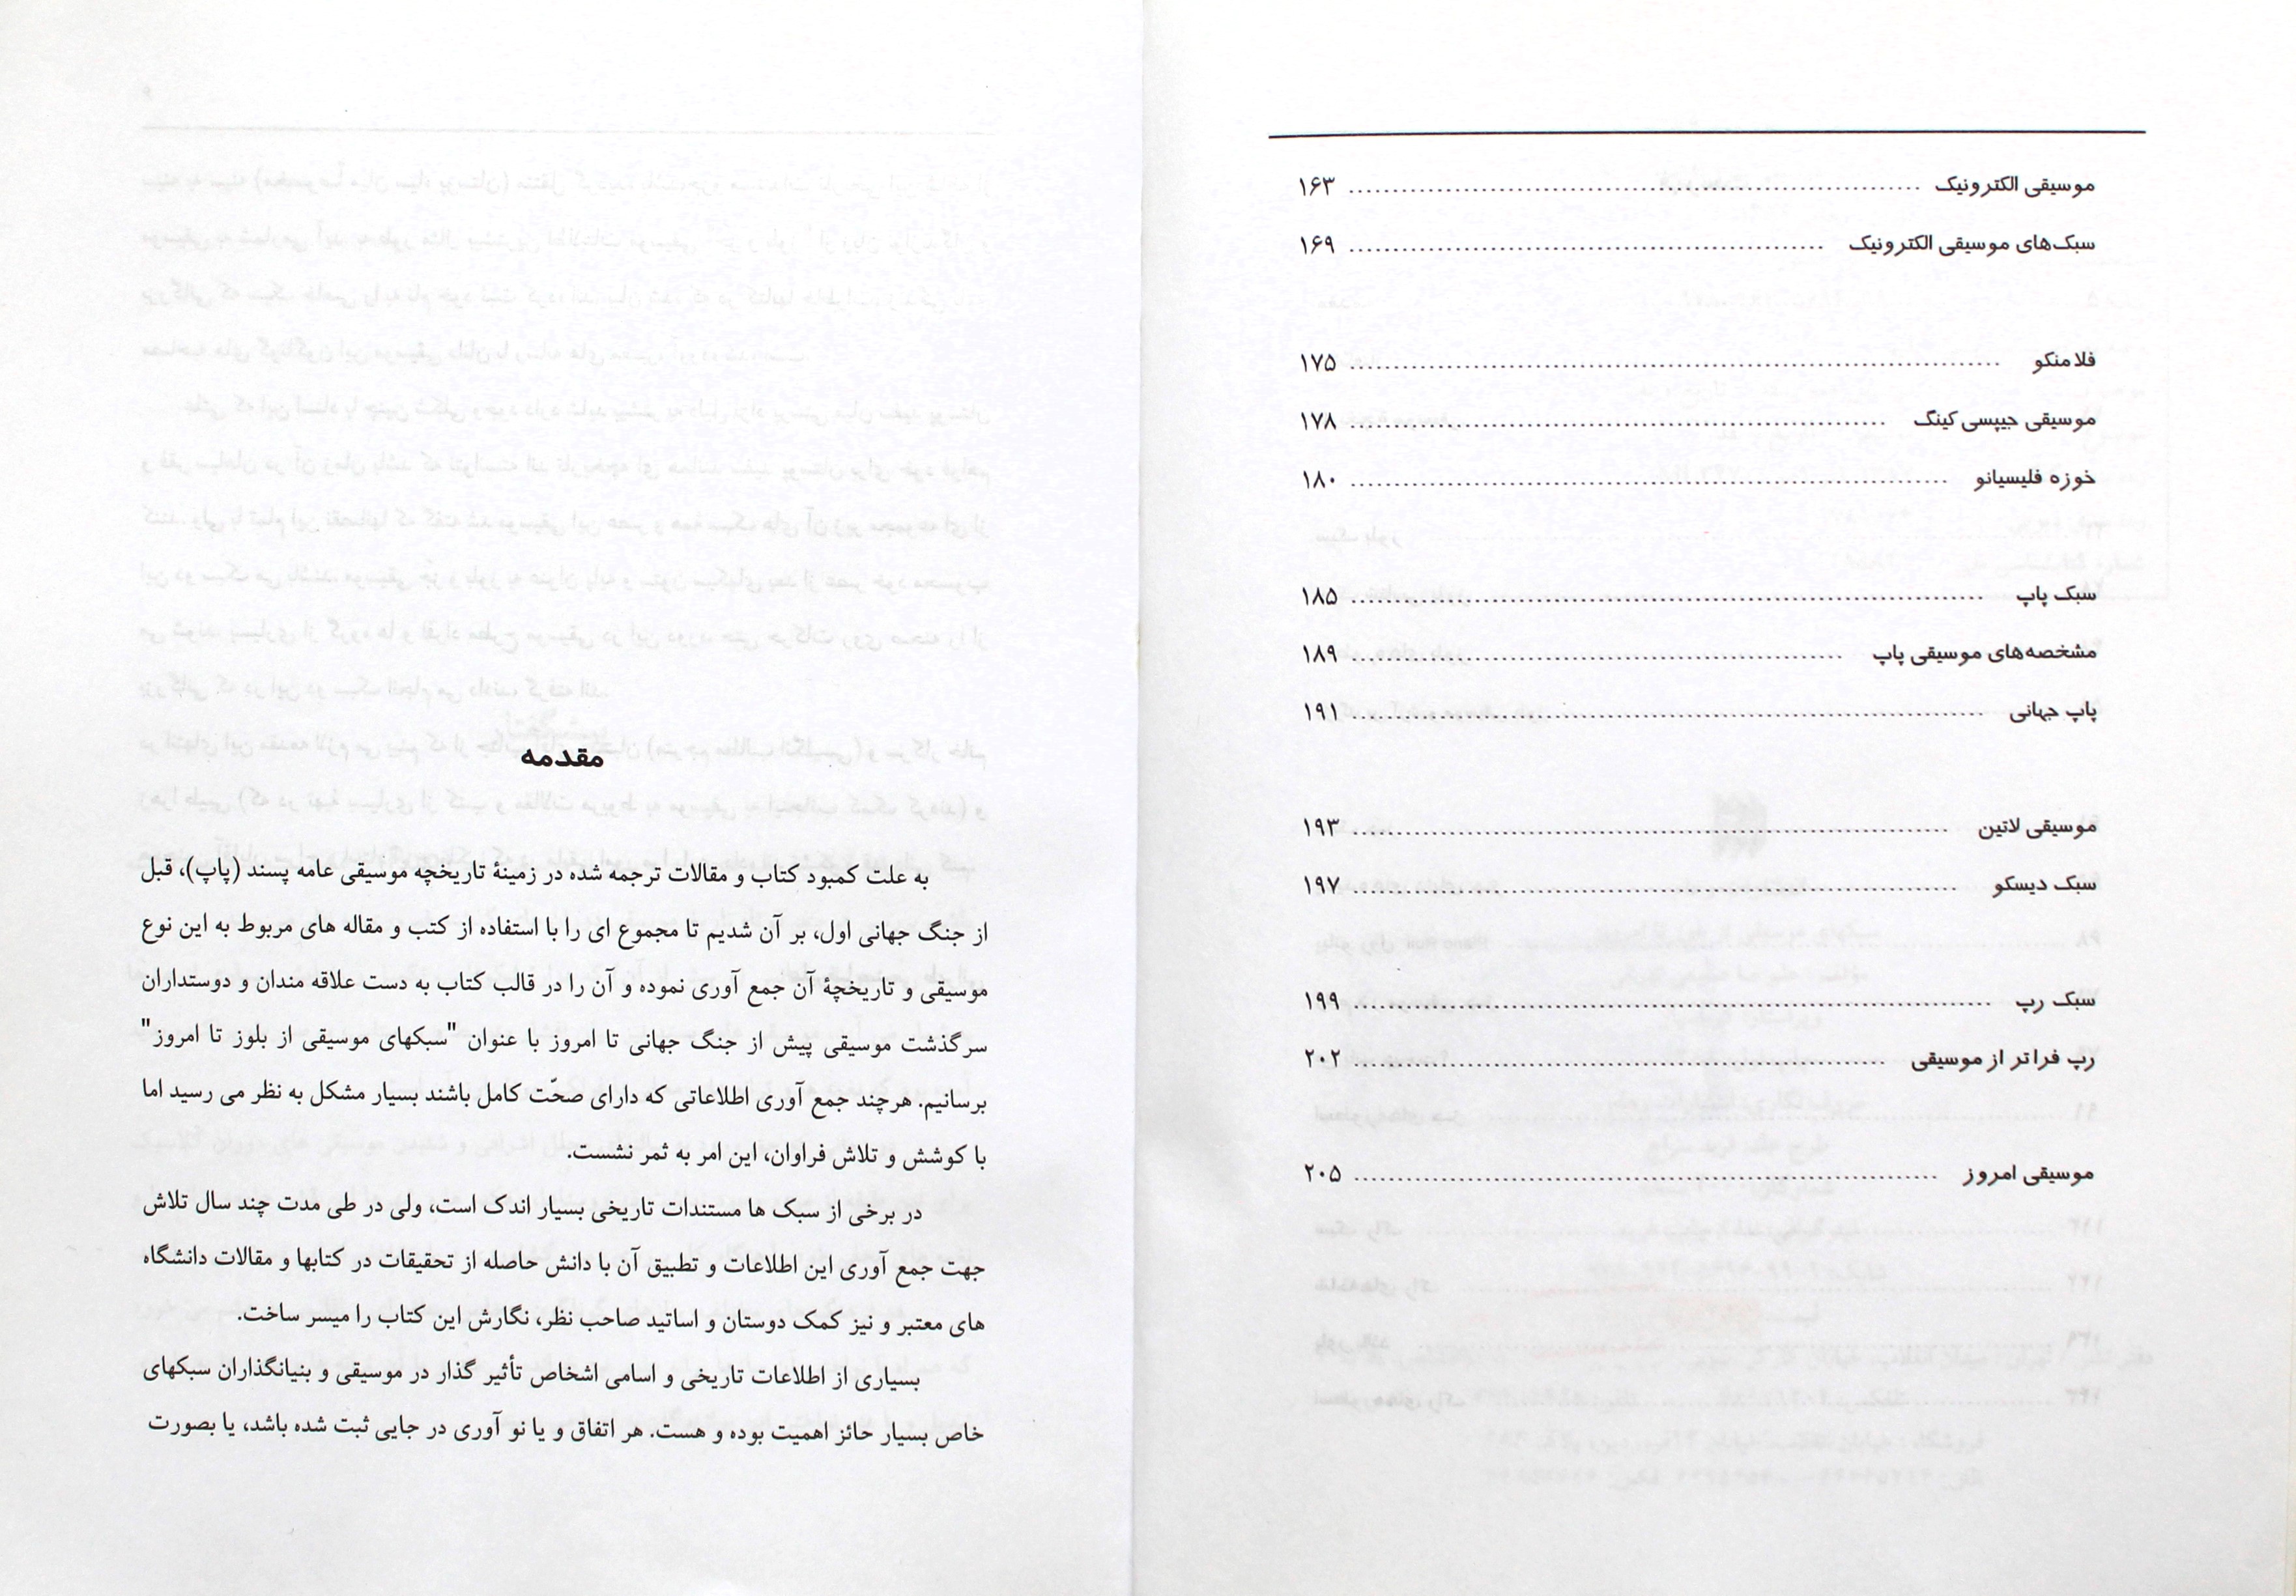 موسیقی الکترونیک ........ ۱۶۳
سبک‌های موسیقی الکترونیک ........ ۱۶۹
فلامنکو ........ ۱۷۵
موسیقی جیپسی کینگ ........ ۱۷۸
خوزه فلیسیانو ........ ۱۸۰
سبک پاپ ........ ۱۸۵
مشخصه‌های موسیقی پاپ ........ ۱۸۹
پاپ جهانی ........ ۱۹۱
موسیقی لاتین ........ ۱۹۳
سبک دیسکو ........ ۱۹۷
سبک رپ ........ ۱۹۹
رپ فراتر از موسیقی ........ ۲۰۲
موسیقی امروز ........ ۲۰۵
مقدمه
به علت کمبود کتاب و مقالات ترجمه شده در زمینهٔ تاریخچه موسیقی عامه پسند (پاپ)، قبل
از جنگ جهانی اول، بر آن شدیم تا مجموع ای را با استفاده از کتب و مقاله های مربوط به این نوع
موسیقی و تاریخچهٔ آن جمع آوری نموده و آن را در قالب کتاب به دست علاقه مندان و دوستداران
سرگذشت موسیقی پیش از جنگ جهانی تا امروز با عنوان "سبکهای موسیقی از بلوز تا امروز"
برسانیم. هرچند جمع آوری اطلاعاتی که دارای صحّت کامل باشند بسیار مشکل به نظر می رسید اما
با کوشش و تلاش فراوان، این امر به ثمر نشست.
در برخی از سبک ها مستندات تاریخی بسیار اندک است، ولی در طی مدت چند سال تلاش
جهت جمع آوری این اطلاعات و تطبیق آن با دانش حاصله از تحقیقات در کتابها و مقالات دانشگاه
های معتبر و نیز کمک دوستان و اساتید صاحب نظر، نگارش این کتاب را میسر ساخت.
بسیاری از اطلاعات تاریخی و اسامی اشخاص تأثیر گذار در موسیقی و بنیانگذاران سبکهای
خاص بسیار حائز اهمیت بوده و هست. هر اتفاق و یا نو آوری در جایی ثبت شده باشد، یا بصورت